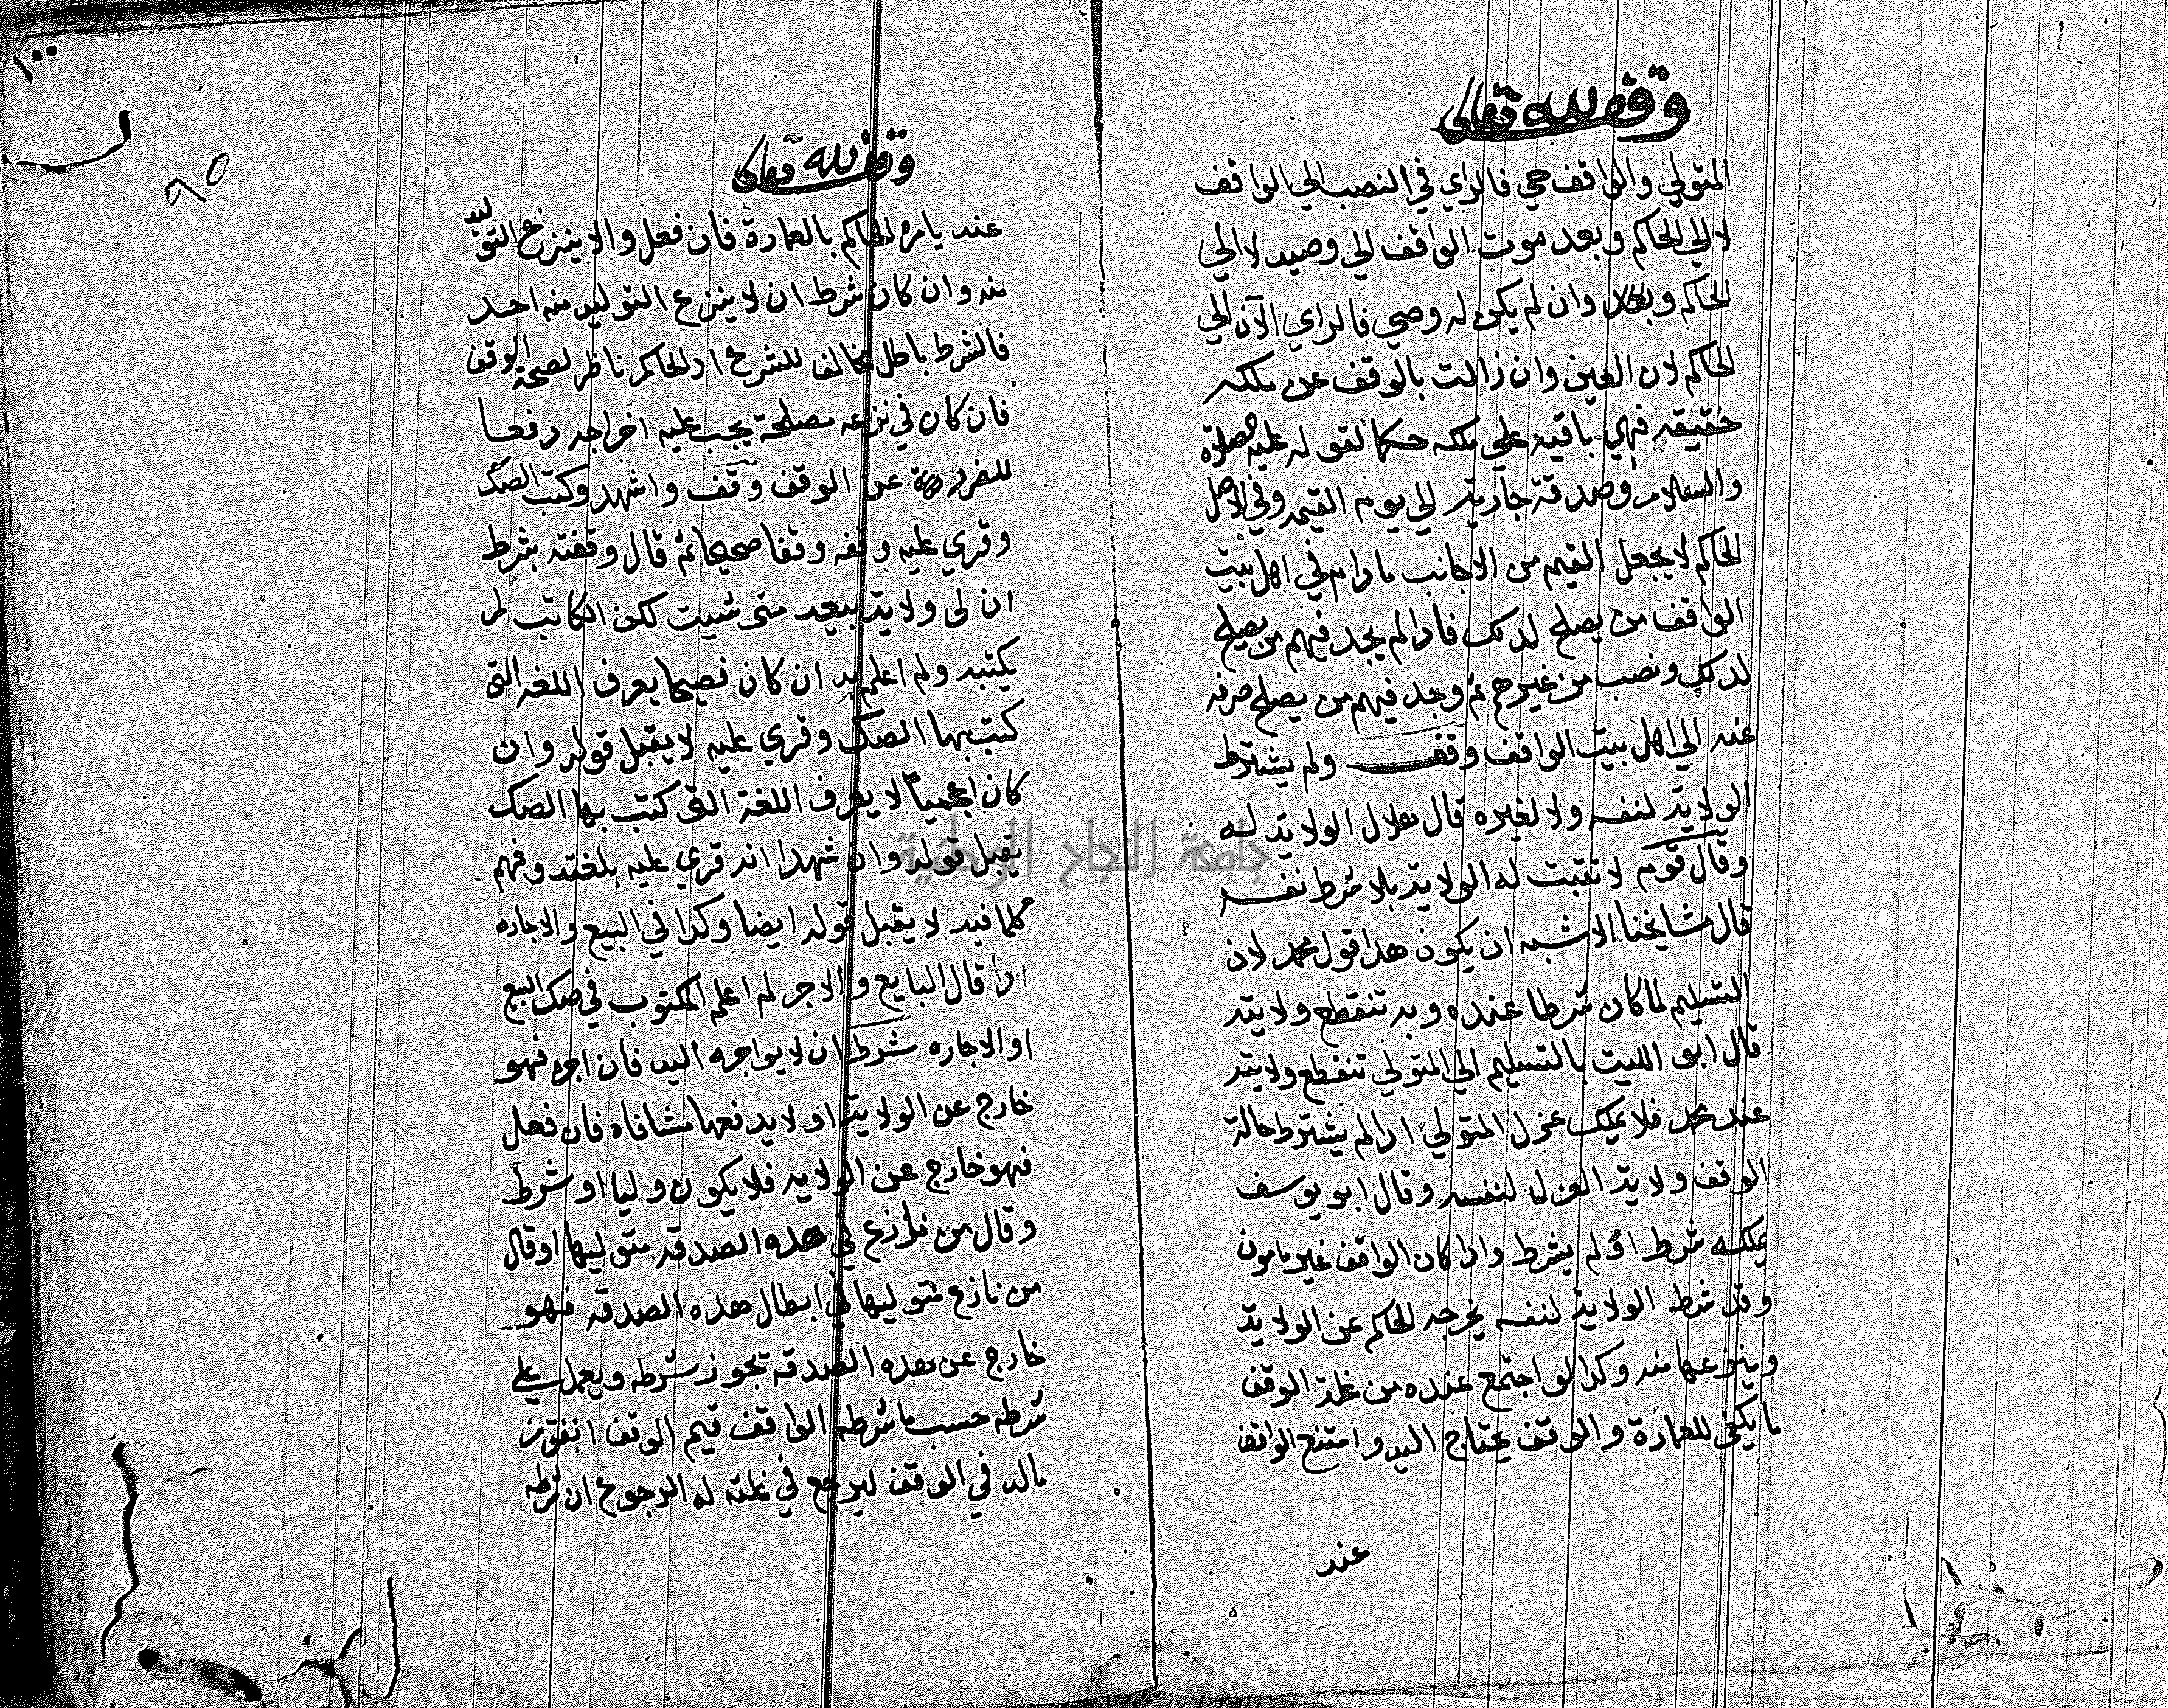 وقف لله تعالى
المتولي والواقف حي فالراي في النصب الي الواقف
لا الي الحاكم وبعد موت الواقف الي وصيه لا الي
الحاكم وان لم يكن له وصي فالراي الآن الي
الحاكم لان العين وان زالت بالوقف عن ملكه
حقيقه فهي باقية علي ملكه حكما لقوله عليه الصلاة
والسلام وصدقة جارية الي يوم القيمه وفي الاصل
الحاكم لا يجعل القيم من الاجانب مادام في اهل بيت
الواقف من يصلح لدلك فادا لم يجد فيهم من يصلح
لدلك ونصب من غيرهم ثم وجد فيهم من يصلح صرفه
عنه الي اهل بيت الواقف وقف ولم يشترط
الولاية لنفسه ولا لغيره قال هلال الولاية له
وقال قوم لا تثبت له الولاية بلا شرط نفسه
قال مشايخنا الاشبه ان يكون هدا قول محمد لان
التسليم لما كان شرطا عنده وبه تنقطع ولايته
قال ابو الليت بالتسليم الي المتولي تنقطع ولايته
عند محمد فلا يملك عزل المتولي ادا لم يشترط حالة
الوقف ولاية العزل لنفسه وقال ابو يوسف
يملكه شرط او لم يشرط وادا كان الواقف غير مامون
وقد شرط الولاية لنفسه يخرجه الحاكم عن الولاية
وينزعها منه وكدا لو اجتمع عنده من غلة الوقف
ما يكفي للعمارة والوقف يحتاج اليه وامتنع الواقف
عند
١٠٠
٩٥
وقف لله تعالى
عنه يامره الحاكم بالعمارة فان فعل والا ينزع التوليه
منه وان كان شرط ان لا ينزع التوليه منه احد
فالشرط باطل مخالف للشرع اد الحاكم ناظر لصحة الوقف
فان كان في نزعه مصلحة يجب عليه اخراجه دفعا
للضرر عن الوقف وقف واشهد وكتب الصك
وقري عليه وقفه وقفا صحيحا ثم قال وقفته بشرط
ان لى ولاية بيعه متى شيت لكن الكاتب لم
يكتبه ولم اعلم به ان كان فصيحا يعرف اللغه التى
كتب بها الصك وقري عليه لا يقبل قوله وان
كان اعجميا لا يعرف اللغة التى كتب بها الصك
يقبل قوله وان شهدا انه قري عليه بلغته وفهم
كلما فيه لا يقبل قوله ايضا وكدا في البيع والاجاره
ادا قال البايع والاجر لم اعلم المكتوب في صك البيع
او الاجاره شرط ان لا يواجره اليه فان اجره فهو
خارج عن الولاية او لا يدفعها مشافاه فان فعل
فهو خارج عن الولايه فلا يكون وليا او شرط
وقال من نازع في هده الصدقه متوليها او قال
من نازع متوليها في ابطال هده الصدقه فهو
خارج عن هده الصدقه تجوز شرطه ويعمل علي
شرطه حسب ما شرطه الواقف قيم الوقف انفق من
ماله في الوقف ليرجع في غلته له الرجوع ان شرطه
جامعة النجاح الوطنية